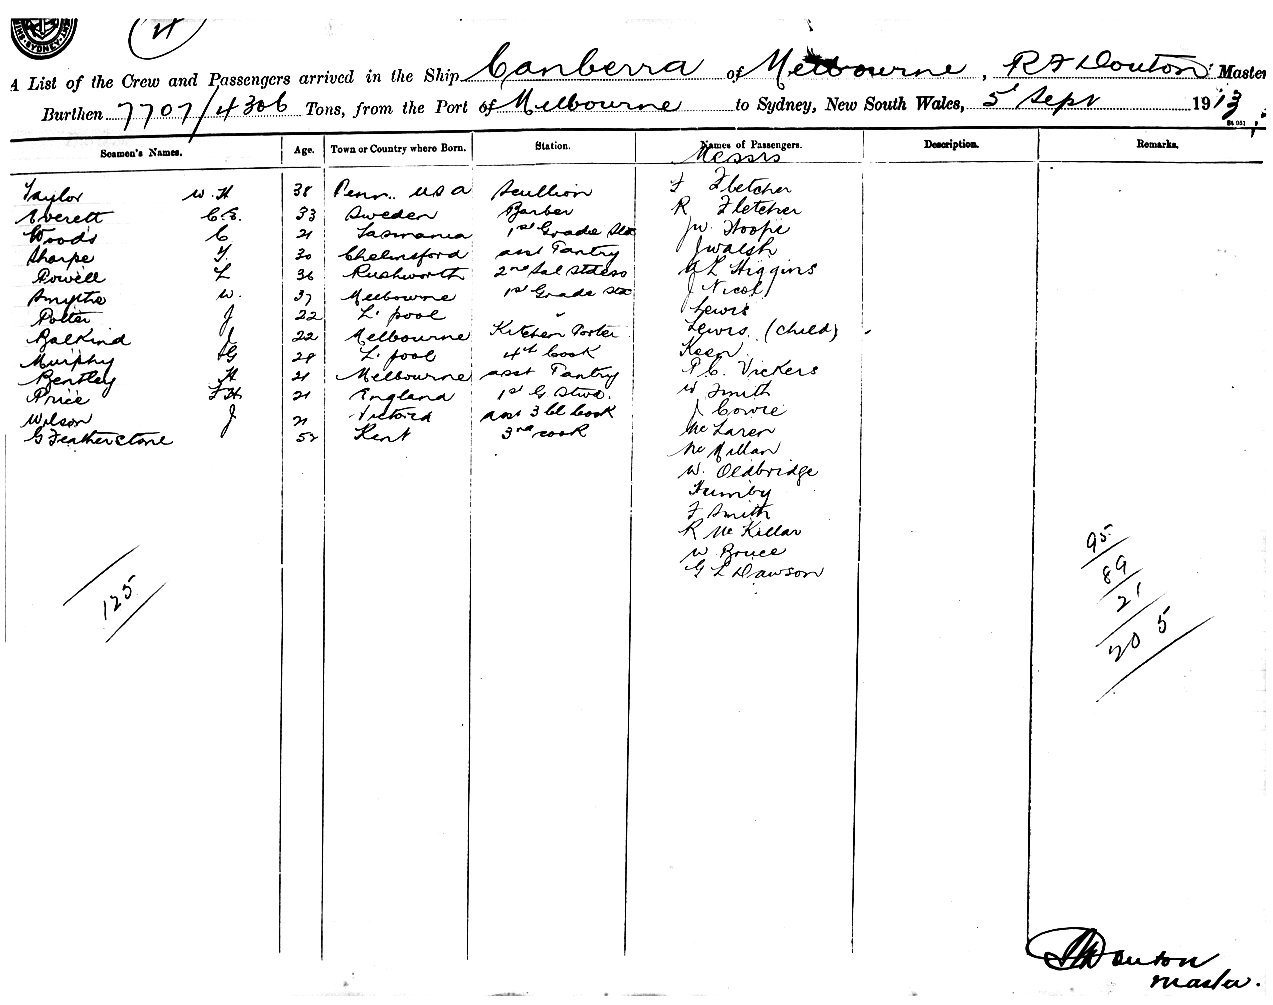 SYDNEY
4
A List of the Crew and Passengers arrived in the Ship Canberra of Melbourne, R F Douton Master
Burthen 7707/4306 Tons, from the Port of Melbourne to Sydney, New South Wales, 5 Sept 1913
Seamen's Names. Age. Town or Country where Born. Station. Names of Passengers. Description. Remarks.
Messrs
Taylor W. H 38 Penn.. USA Scullion F Fletcher
Everett C. E. 33 Sweden Barber R Fletcher
Woods C 21 Tasmania 1st Grade Std J W. Hoope
Sharpe T. 30 Chelmsford asst Pantry J Walsh
Powell L 36 Rushworth 2nd Sal Stdess A L Higgins
Smythe W. 37 Melbourne 1st Grade Std J Nicol
Potter J 22 L'pool " Lewis
Balkind J 22 Melbourne Kitchen Porter Lewis (child)
Murphy G 28 L'pool 4th Cook Keen
Bentley H 21 Melbourne asst Pantry P. C. Vickers
Price F H 21 England 1st G. Stwd. W Smith
Wilson J 21 Victoria asst 3 cl Cook J Cowie
G Featherstone 52 Kent 3rd cook McLaren
McMillan
W. Oldbridge
Humby
F Smith
R McKillar
W Bruce
G L Dawson
125
95
89
21
205
Douton
Master.